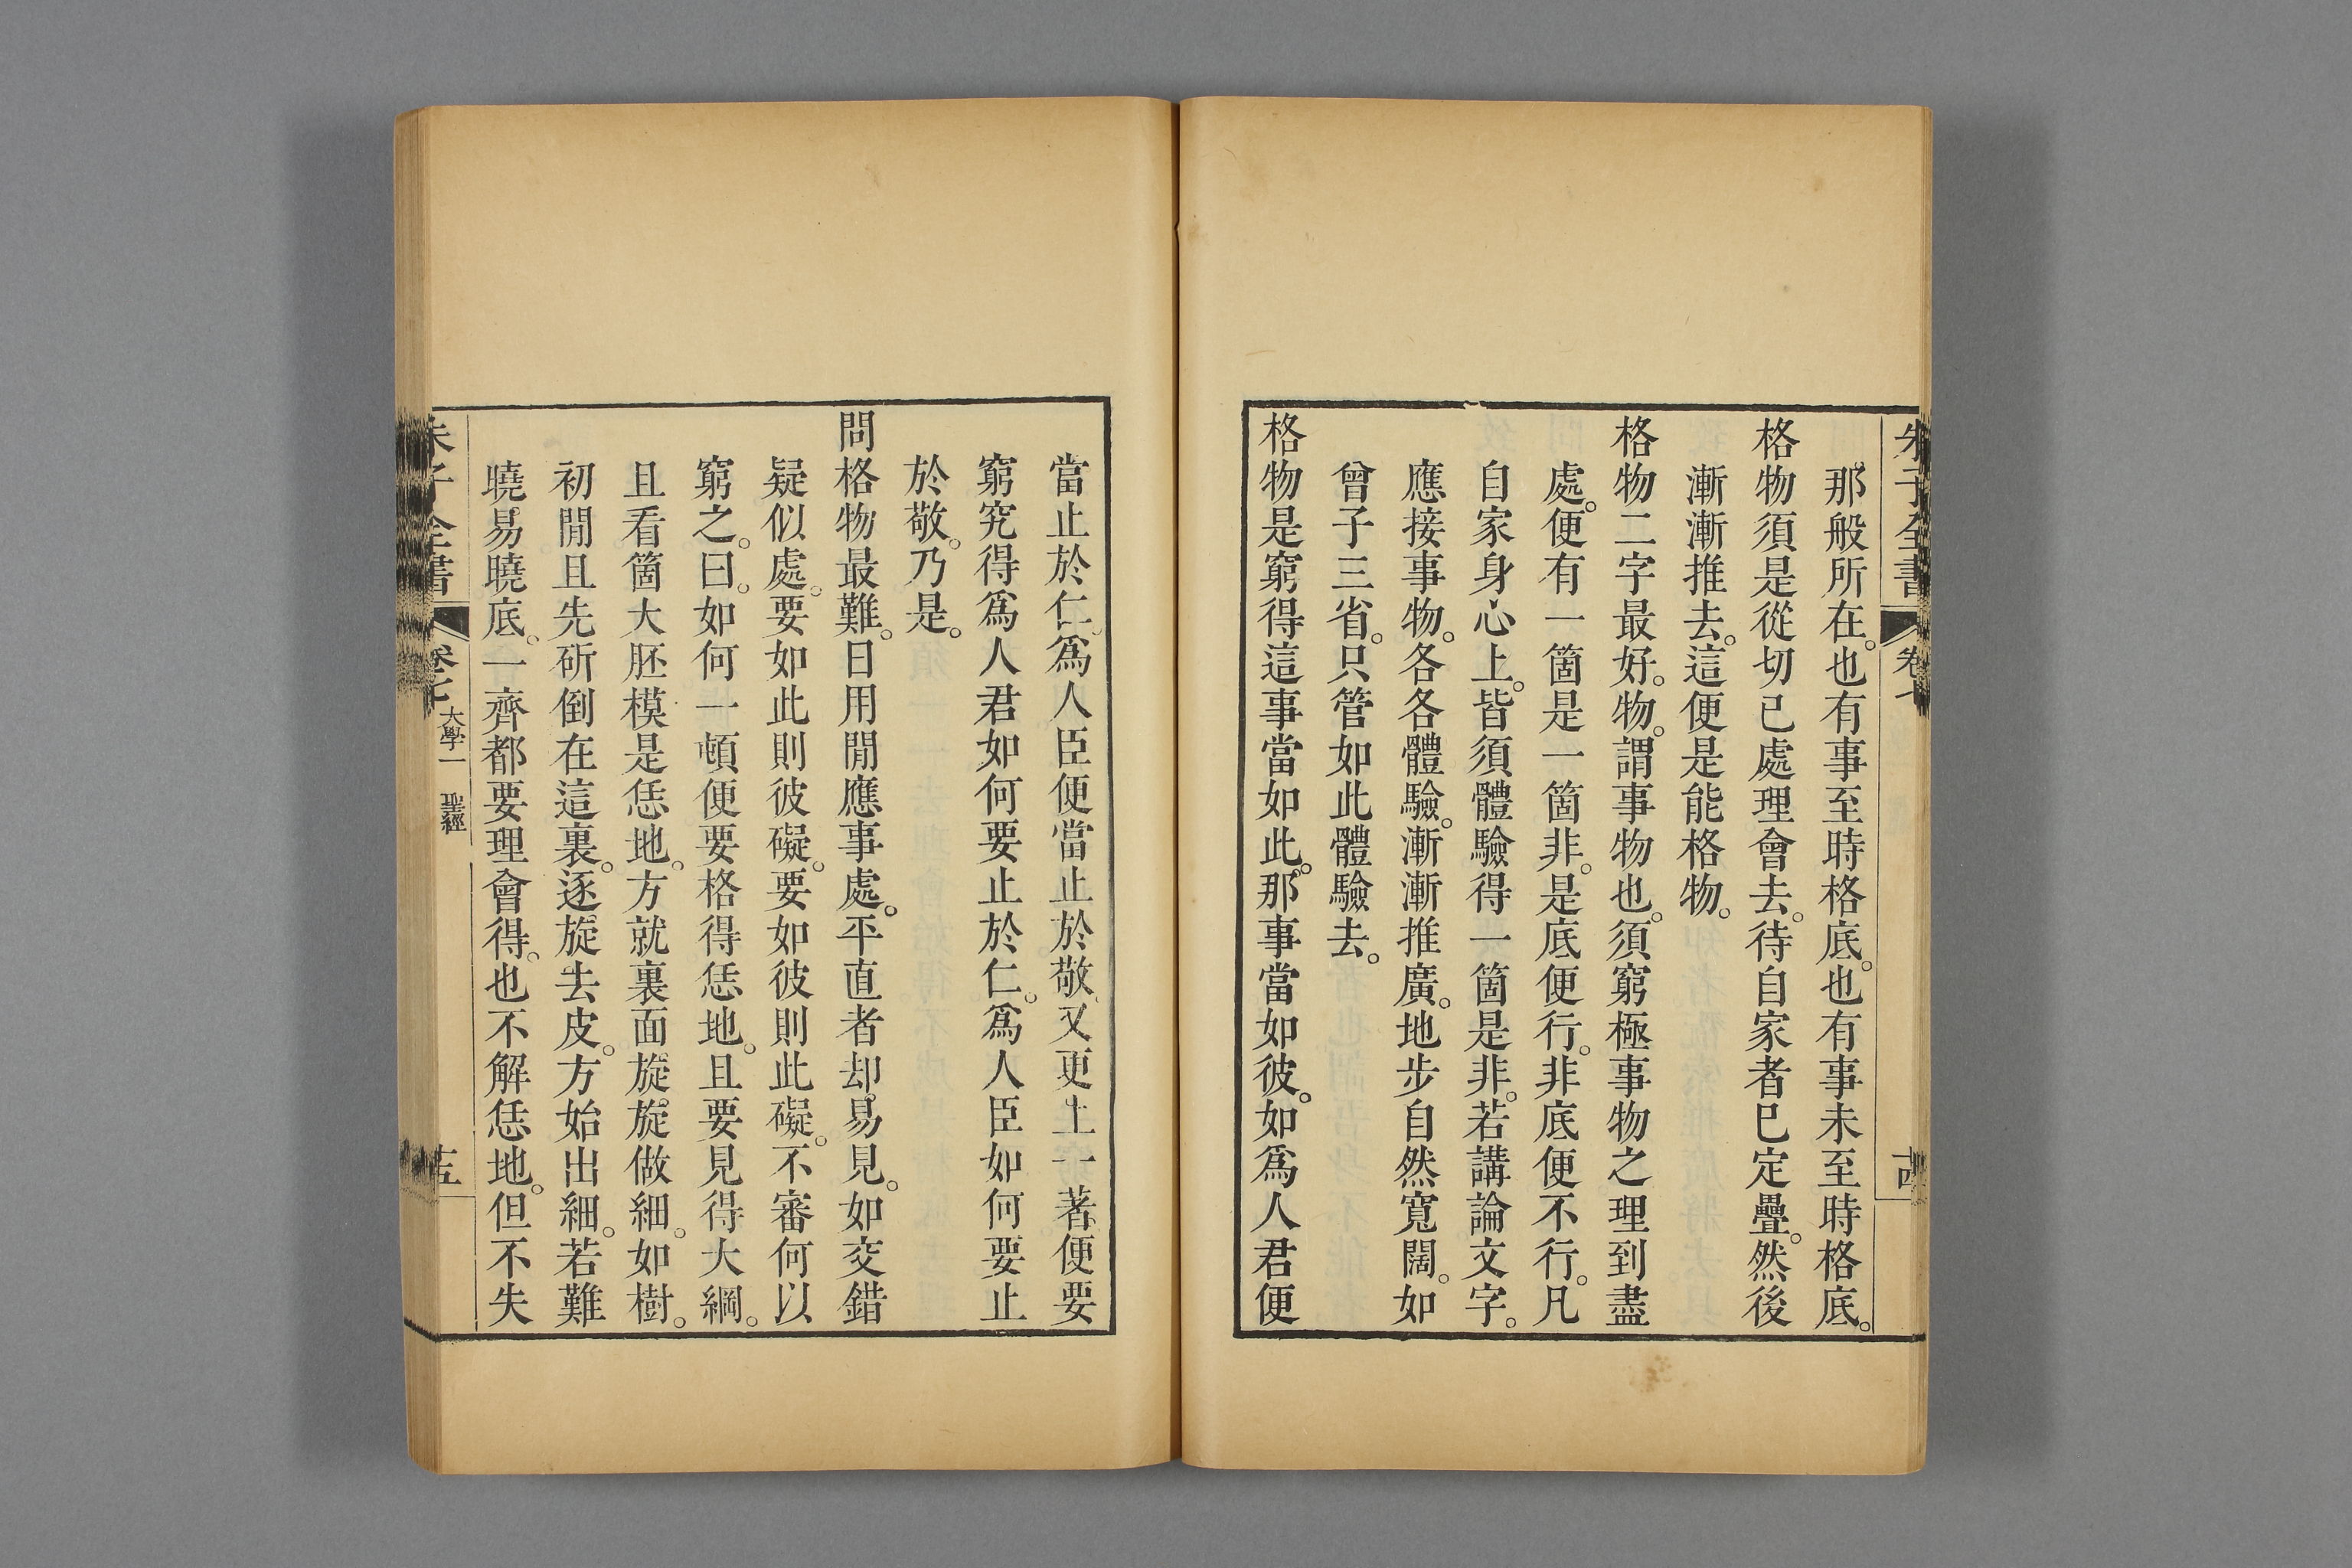 朱子全書 卷七 十四
那般所在。也有事至時格底。也有事未至時格底。
格物須是從切己處理會去。待自家者已定疊。然後
漸漸推去。這便是能格物。
格物二字最好。物。謂事物也。須窮極事物之理到盡
處。便有一箇是一箇非。是底便行。非底便不行。凡
自家身心上。皆須體驗得一箇是非。若講論文字。
應接事物。各各體驗。漸漸推廣。地步自然寬闊。如
曾子三省。只管如此體驗去。
格物是窮得這事當如此。那事當如彼。如爲人君便
當止於仁。爲人臣便當止於敬。又更上一著。便要
窮究得爲人君如何要止於仁。爲人臣如何要止
於敬。乃是。
問格物最難。日用閒應事處。平直者却易見。如交錯
疑似處。要如此則彼礙。要如彼則此礙。不審何以
窮之。曰。如何一頓便要格得恁地。且要見得大綱。
且看箇大胚模是恁地。方就裏面旋旋做細。如樹。
初閒且先斫倒在這裏。逐旋去皮。方始出細。若難
曉易曉底。一齊都要理會得。也不解恁地。但不失
朱子全書 卷七 大學一 聖經 十五